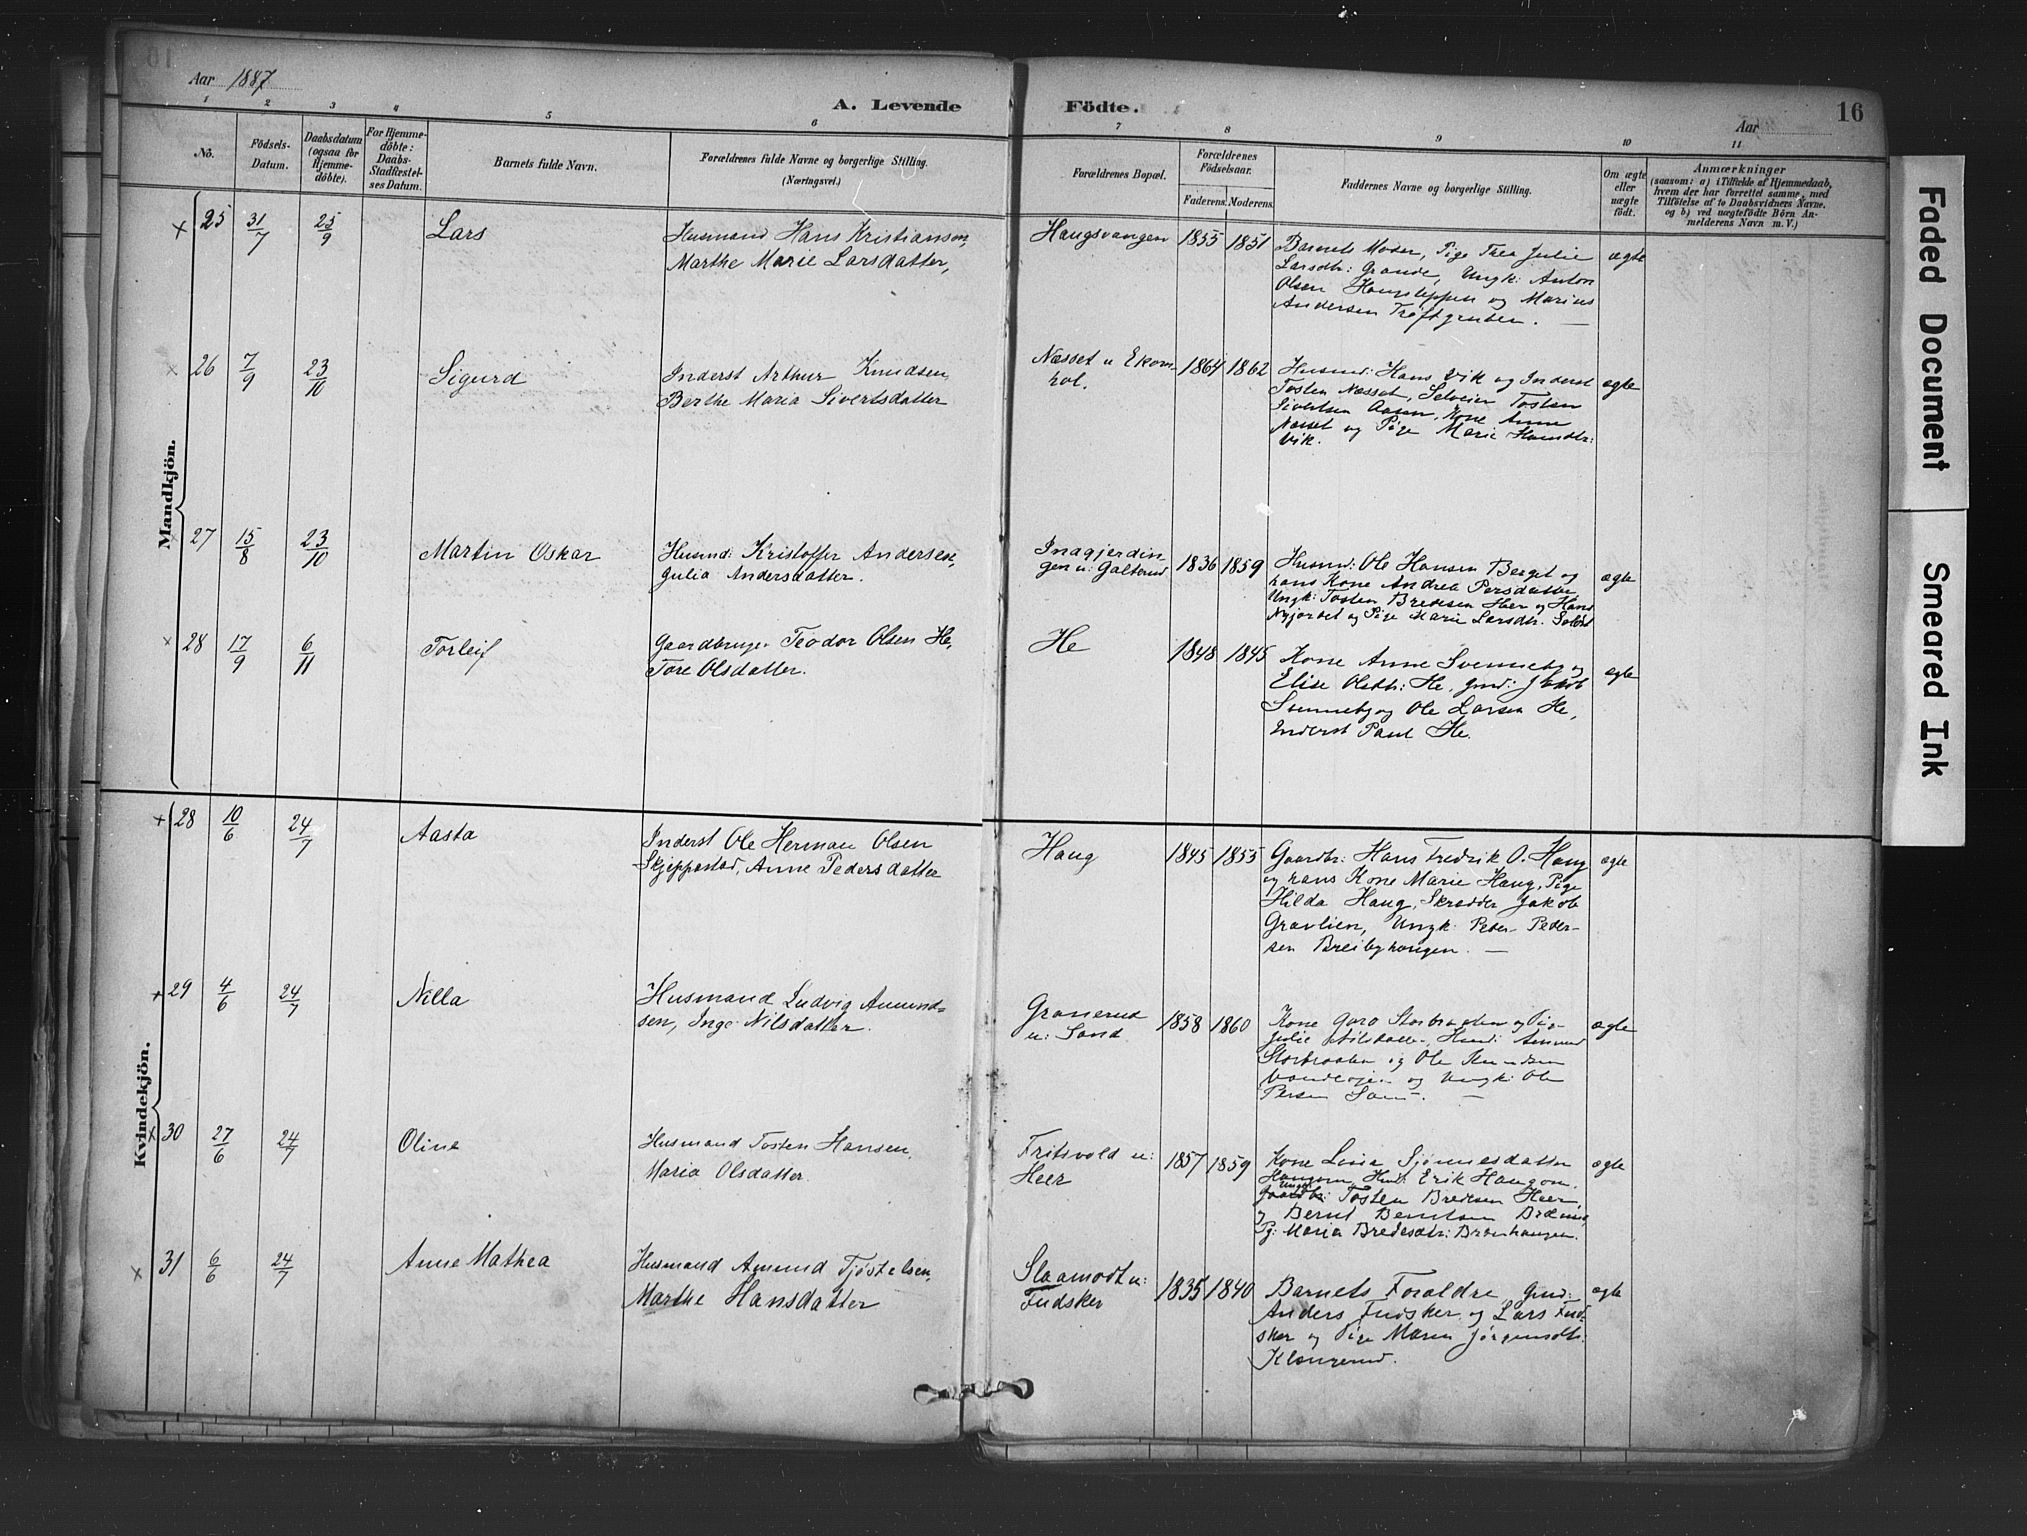 Aar 1887
A. Levende Födte.
Aar
16
1 2 3 4 5 6 7 8 9 10 11
No.
Födsels-Datum.
Daabsdatum (ogsaa for Hjemme-döbte).
For Hjemme-döbte: Daabs-Stadfæstel-ses Datum.
Barnets fulde Navn.
Forældrenes fulde Navne og borgerlige Stilling.
(Næringsvei.)
Forældrenes Bopæl.
Forældrenes Födselsaar.
Faderens. Moderens.
Faddernes Navne og borgerlige Stilling.
Om ægte eller uægte födt.
Anmærkninger
(saasom: a) i Tilfælde af Hjemmedaab, hvem der har forrettet samme, med Tilföielse af to Daabsvidners Navne, og b) ved uægtefödte Börn An-melderens Navn m. V.)
Mandkjön.
25 31/7 25/9 Lars
Husmand Hans Kristiansen,
Marthe Marie Larsdatter,
Haugsvangen 1855 1851
Barnets Moder, Pige Thea Julie
Larsdtr: Grande, Ungk: Anton
Olsen og Marius
Andersen
ægte
26 7/9 23/10 Sigurd
Inderst Arthur Knudsen,
Berthe Maria Sivertsdatter
Næsset u Ekorn-
hol. 1864 1862
Husmd: Hans Vik og Inderst
Tosten Næsset, Selveier Tosten
Sivertsen Aasen, Kone Anne
Næsset og Pige Marie
Vik.
ægte
27 15/8 23/10 Martin Oskar
Husmd: Kristoffer Andersen,
Julia Andersdatter.
Inagjerdin
gen u: Galterud 1836 1859
Husmd: Ole Hansen Berget og
hans Kone Andrea Persdatter
Ungk: Tosten Bredesen Heer og Hans
og Pige Marie Larsdtr.
ægte
28 17/9 6/11 Torleif
Gaardbruger Teodor Olsen He,
Tore Olsdatter.
He 1848 1845
Kone Anne Svenneby
Elise Olsdtr: He, Gmd: Jakob
Svenneby og Ole Larsen He,
Inderst Paul He.
ægte
Kvindekjön.
28 10/6 24/7 Aasta
Inderst Ole Herman Olsen
Skjeppestad, Anne Pedersdatter
Haug 1845 1855
Gaardbr: Hans Fredrik O. Haug
og hans Kone Marie Haug, Pige
Hilda Haug, Skrædder Jakob
Gravlien, Ungk: Peter Peder-
sen Breibyhaugen.
ægte
29 4/6 24/7 Nilla
Husmand Ludvig Amund-
sen, Inge Nilsdatter.
Granerud
u: Sand 1858 1860
Kone Goro Storbraaten og Pige
Julie Nilsdatter, Husmd: Amund
Storbraaten og Ole Knudsen
og Ungk: Ole
Persen
ægte
30 27/6 24/7 Oline
Husmand Tosten Hansen,
Maria Olsdatter.
Fritsvold u:
Heer 1857 1859
Kone Lina
Haugom, Husmd: Erik Haugom.
Ungk: Tosten Bredesen Heer,
og Bernt Berntsen
Pg: Maria Bredesdtr:
ægte
31 6/6 24/7 Anne Mathea
Husmand Amund Tjøstelsen,
Marthe Hansdatter
Slaamodt u:
Fudsker 1835 1840
Barnets Forældre Gmd:
Anders Fudsker og Lars Fud-
sker og Pige Maren Jørgensdtr.
ægte
Faded Document
Smeared Ink